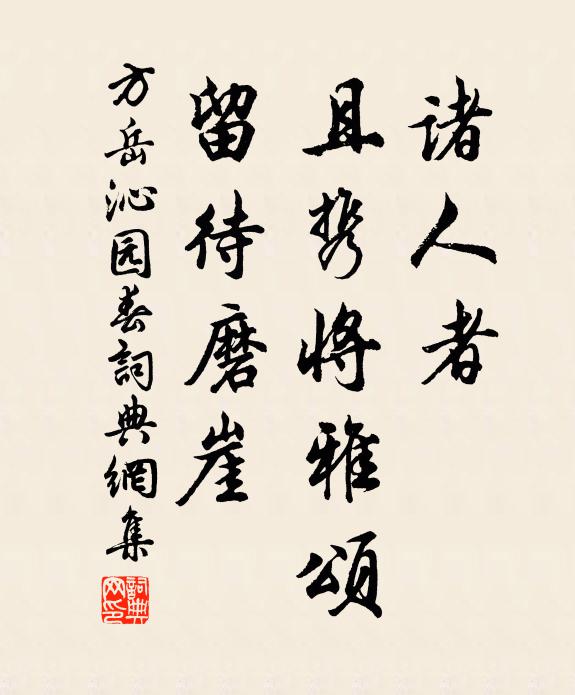 诸人者
且携将雅頌
留待磨崖
方岳沁园春詞典網集
詞典网印